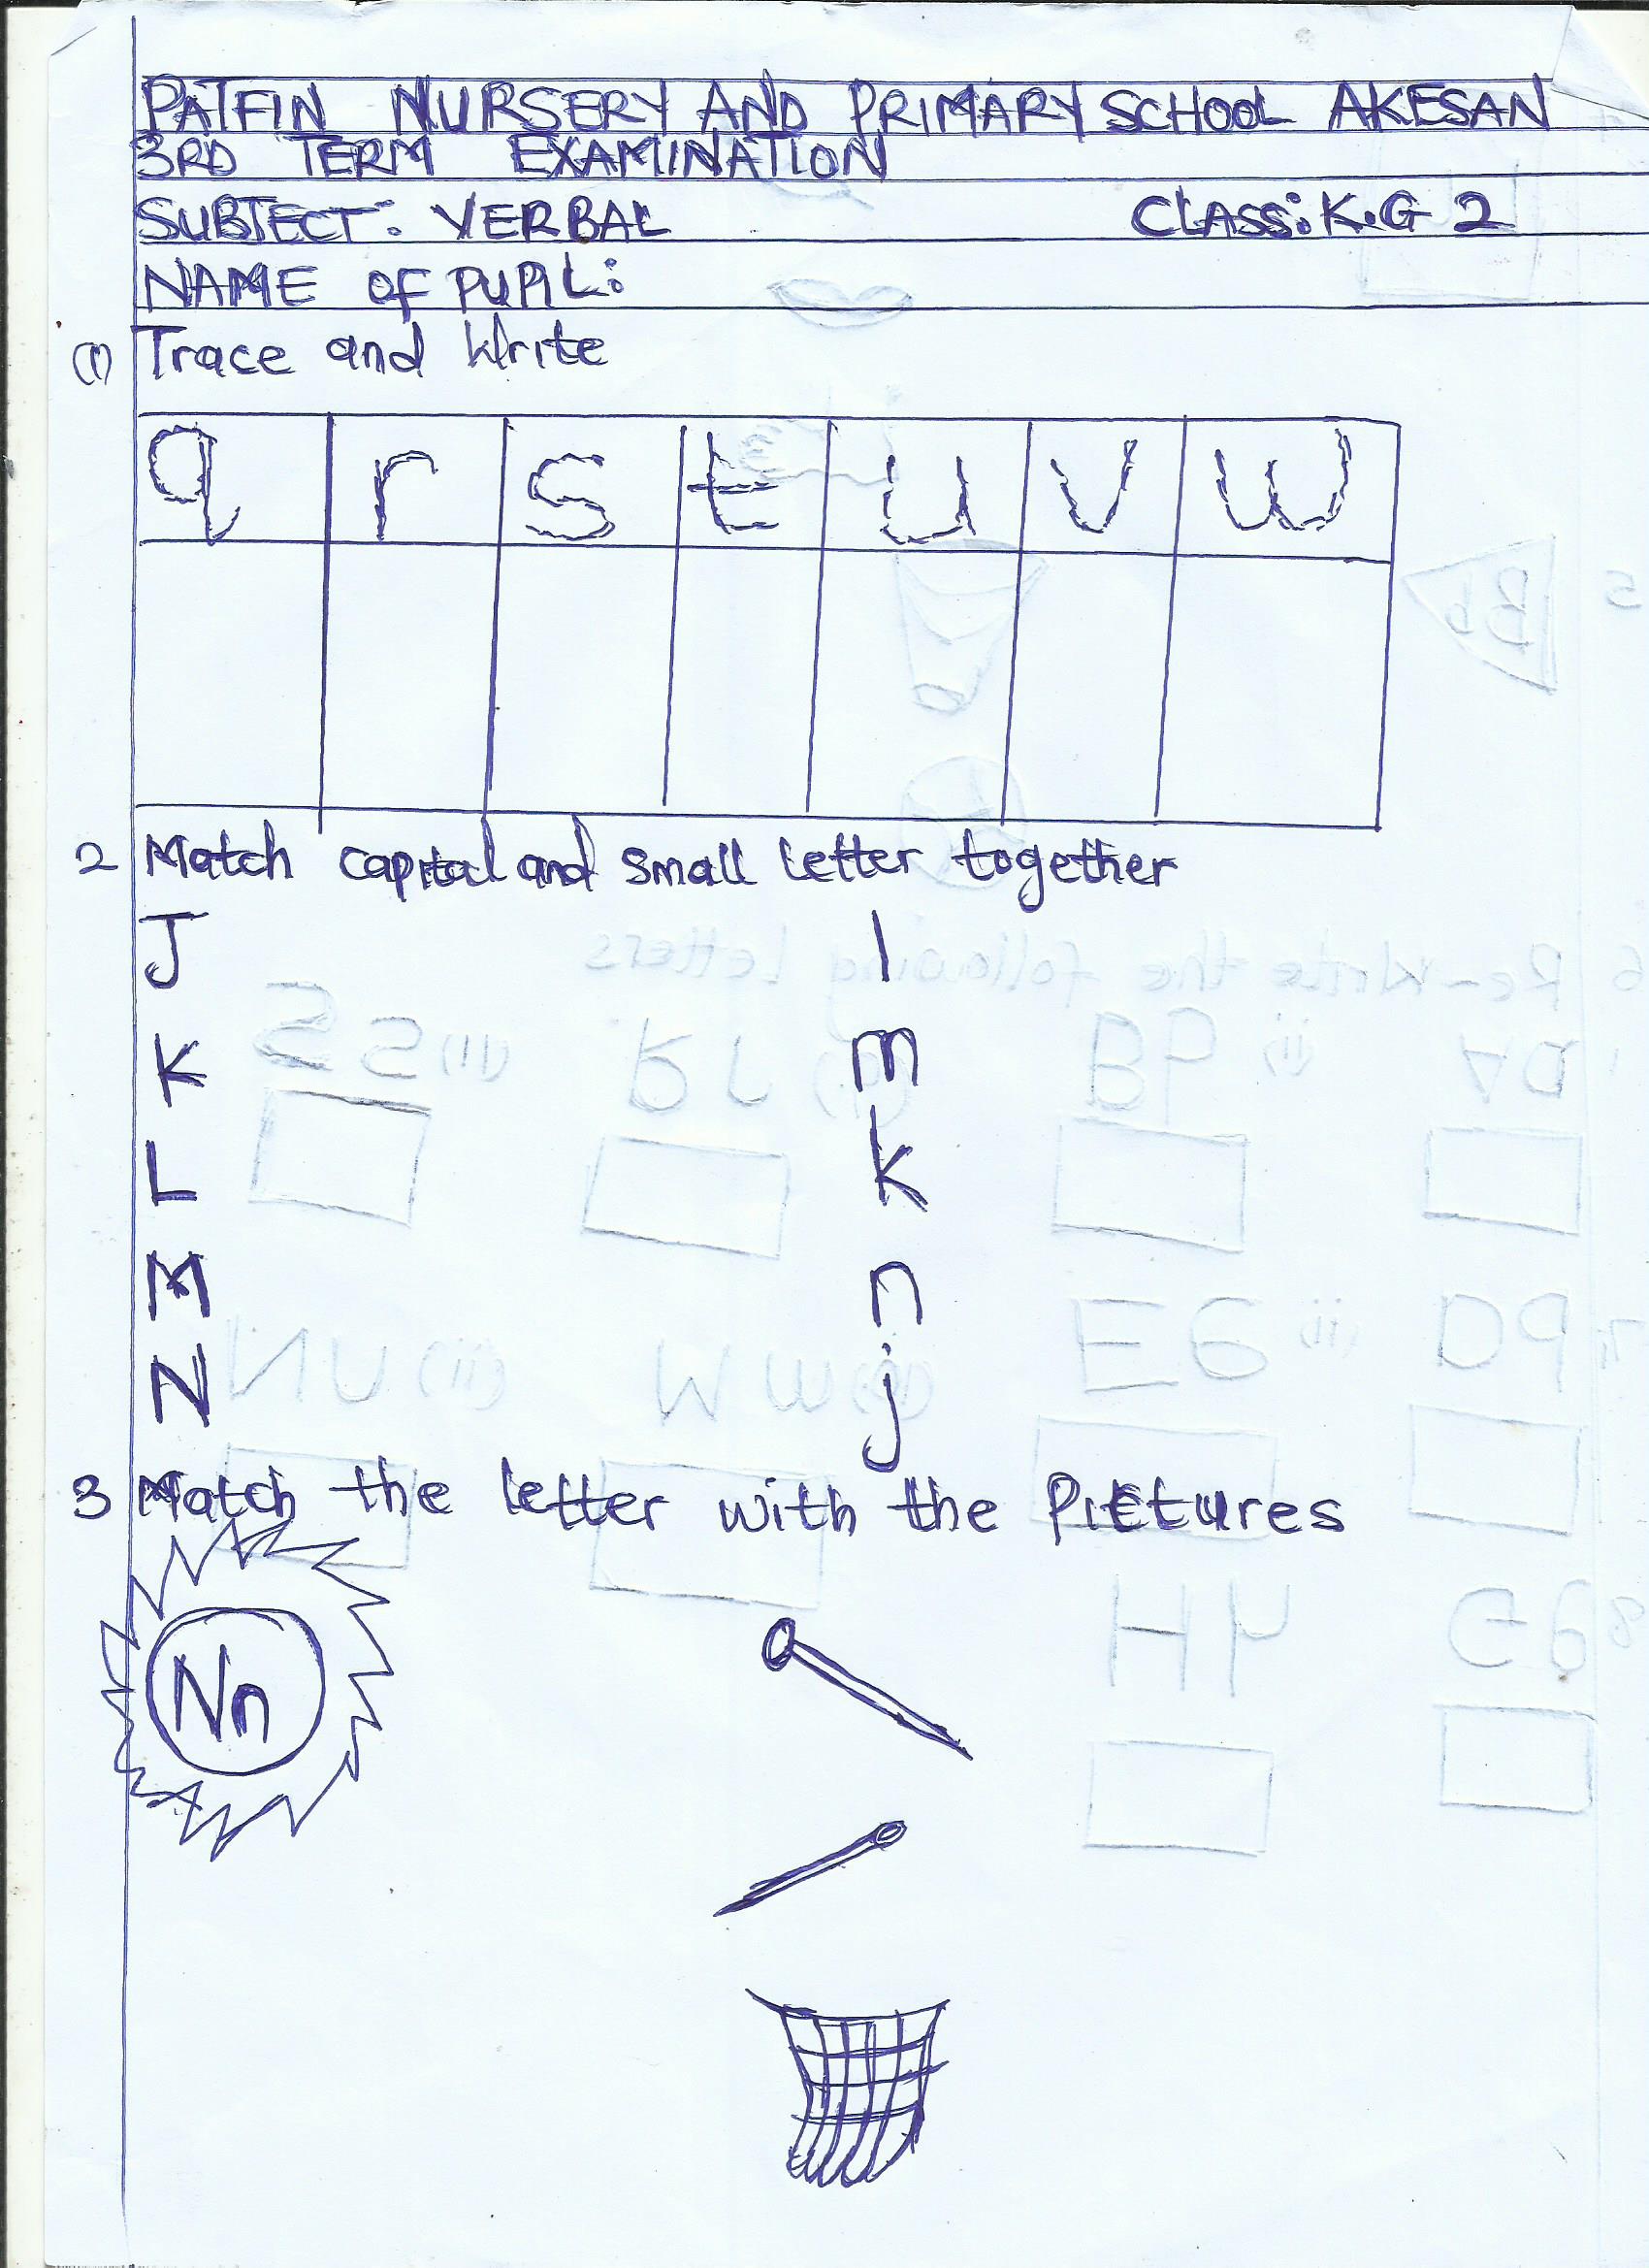 PATFIN NURSERY AND PRIMARY SCHOOL AKESAN
3RD TERM EXAMINATION
SUBJECT: VERBAL CLASS: K.G 2
NAME OF PUPIL:
(1) Trace and Write
q r s t u v w
2 Match capital and small letter together
J l
K m
L k
M n
N j
3 Match the letter with the Pictures
Nn